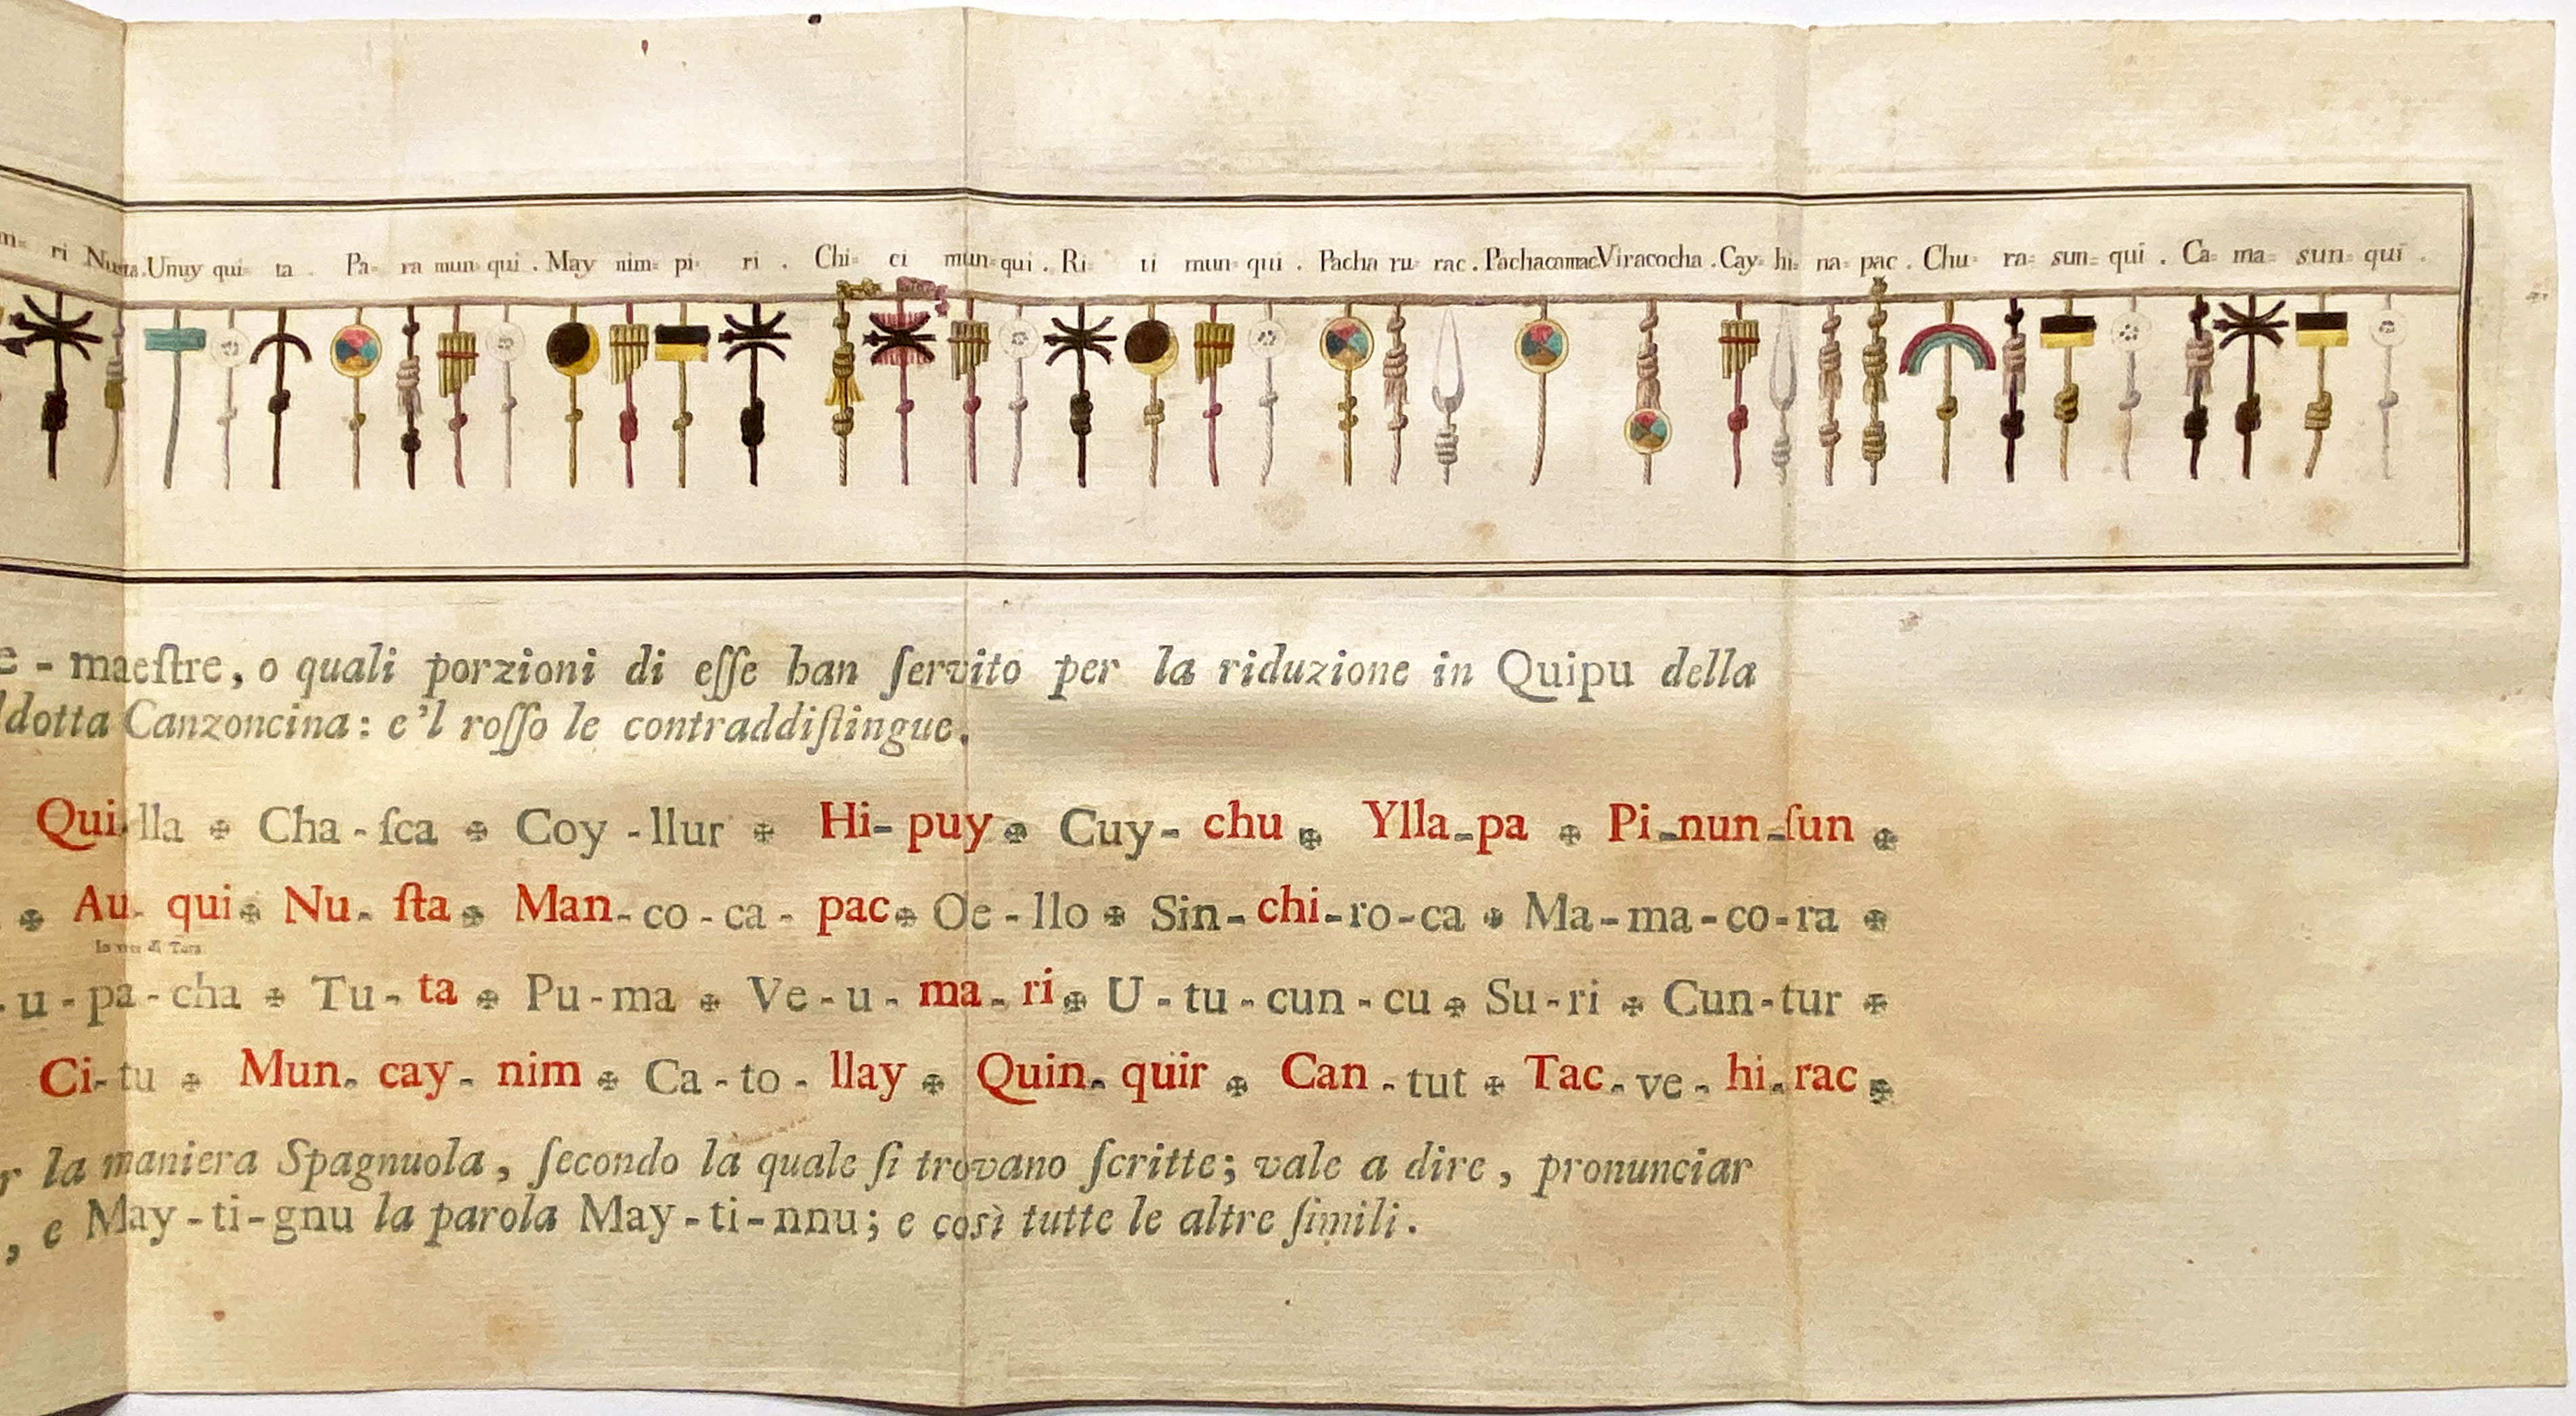 ri Nusta. Unuy qui= ta . Pa= ra mun= qui . May nim= pi= ri . Chi= ci mun= qui . Ri= ti mun= qui . Pacha ru= rac . Pachacamac Viracocha . Cay= hi= na= pac . Chu= ra= sun= qui . Ca= ma= sun= qui .
- maeſtre, o quali porzioni di eſſe han ſervito per la riduzione in Quipu della
dotta Canzoncina: e'l roſſo le contraddiſtingue.
Qui-lla ✠ Cha-ſca ✠ Coy-llur ✠ Hi-puy ✠ Cuy-chu ✠ Ylla-pa ✠ Pi-nun-ſun ✠
✠ Au-qui ✠ Nu-ſta ✠ Man-co-ca-pac ✠ Oe-llo ✠ Sin-chi-ro-ca ✠ Ma-ma-co-ra ✠
u-pa-cha ✠ Tu-ta ✠ Pu-ma ✠ Ve-u-ma-ri ✠ U-tu-cun-cu ✠ Su-ri ✠ Cun-tur ✠
Ci-tu ✠ Mun-cay-nim ✠ Ca-to-llay ✠ Quin-quir ✠ Can-tut ✠ Tac-ve-hi-rac ✠
la maniera Spagnuola, ſecondo la quale ſi trovano ſcritte; vale a dire, pronunciar
, e May-ti-gnu la parola May-ti-nnu; e così tutte le altre ſimili.